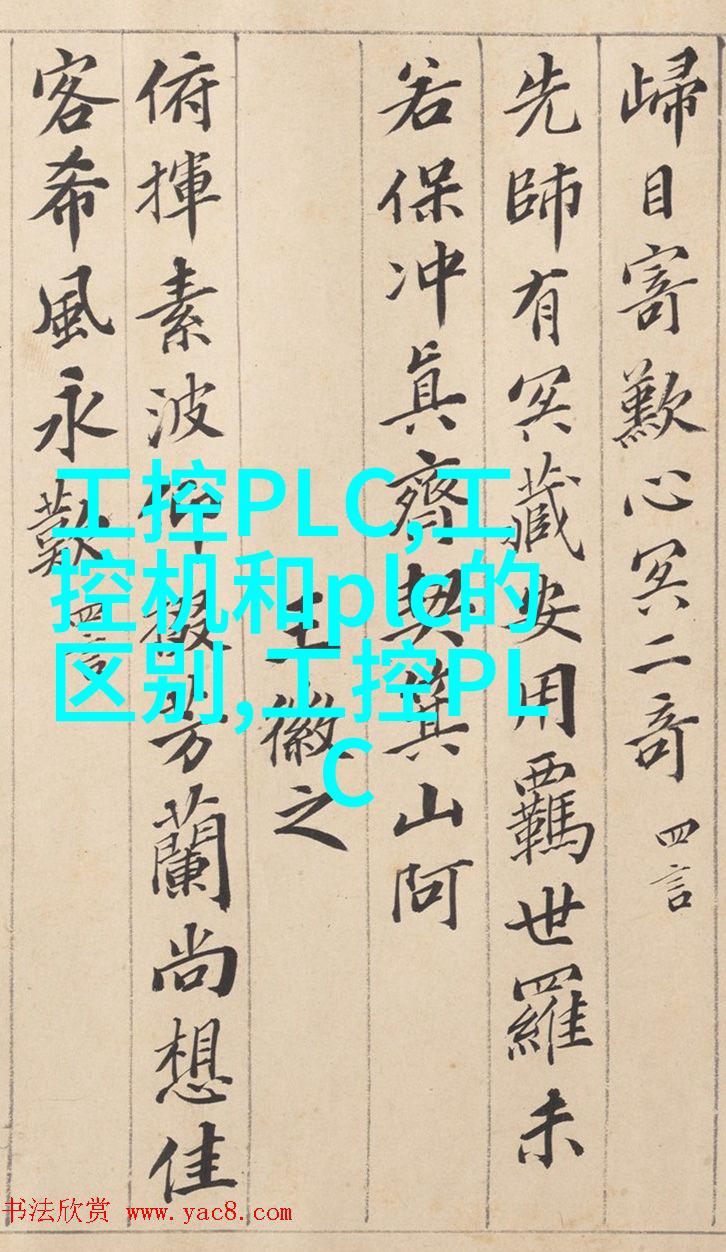 歸目寄歎心冥二奇 四言
先師有冥藏安用羈世羅未
若保冲眞齊契箕山阿
王徽之
俯揮素波仰掇芳蘭尚想佳
客希風永歎 四言
工控PLC,工
控机和plc的
区别,工控PL
C
书法欣赏 www.yac8.com